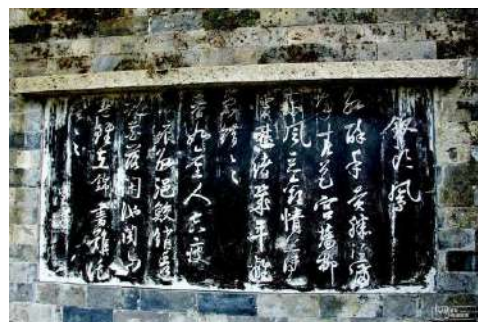 釵頭鳳
紅酥手黃縢酒滿
城春色宮牆柳
東風惡歡情薄一
懷愁緒幾年離
索錯々々
春如舊人空瘦
淚痕紅浥鮫綃透
桃花落閑池閣山
盟雖在錦書難托